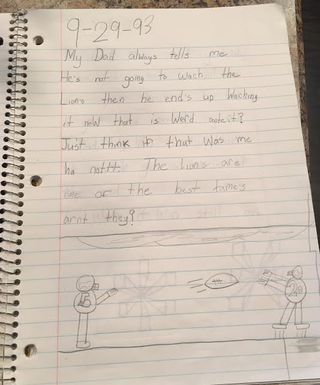 9-29-93
My Dad always tells me
He's not going to wach the
Lions then he end's up waching
it now that is Weird
Just think if that was me
ha The Lions are
one of the best
arnt they?
15